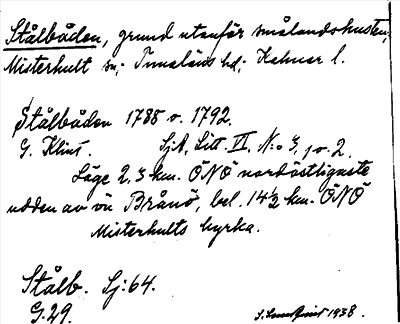 Stålbåden, grund utanför smålandskusten,
Misterhult sn; Tunaläns hd; Kalmar l.
Stålbåden 1788 o. 1792.
G. Klint. SjA, Litt. VI, N:o 3, jo. 2.
Läge 2,3 km. ÖNÖ nordöstligaste
udden av ön Brånö, bel. 14½ km. ÖNÖ
Misterhults kyrka.
Stålb. Sj:64.
G.29. 1938.